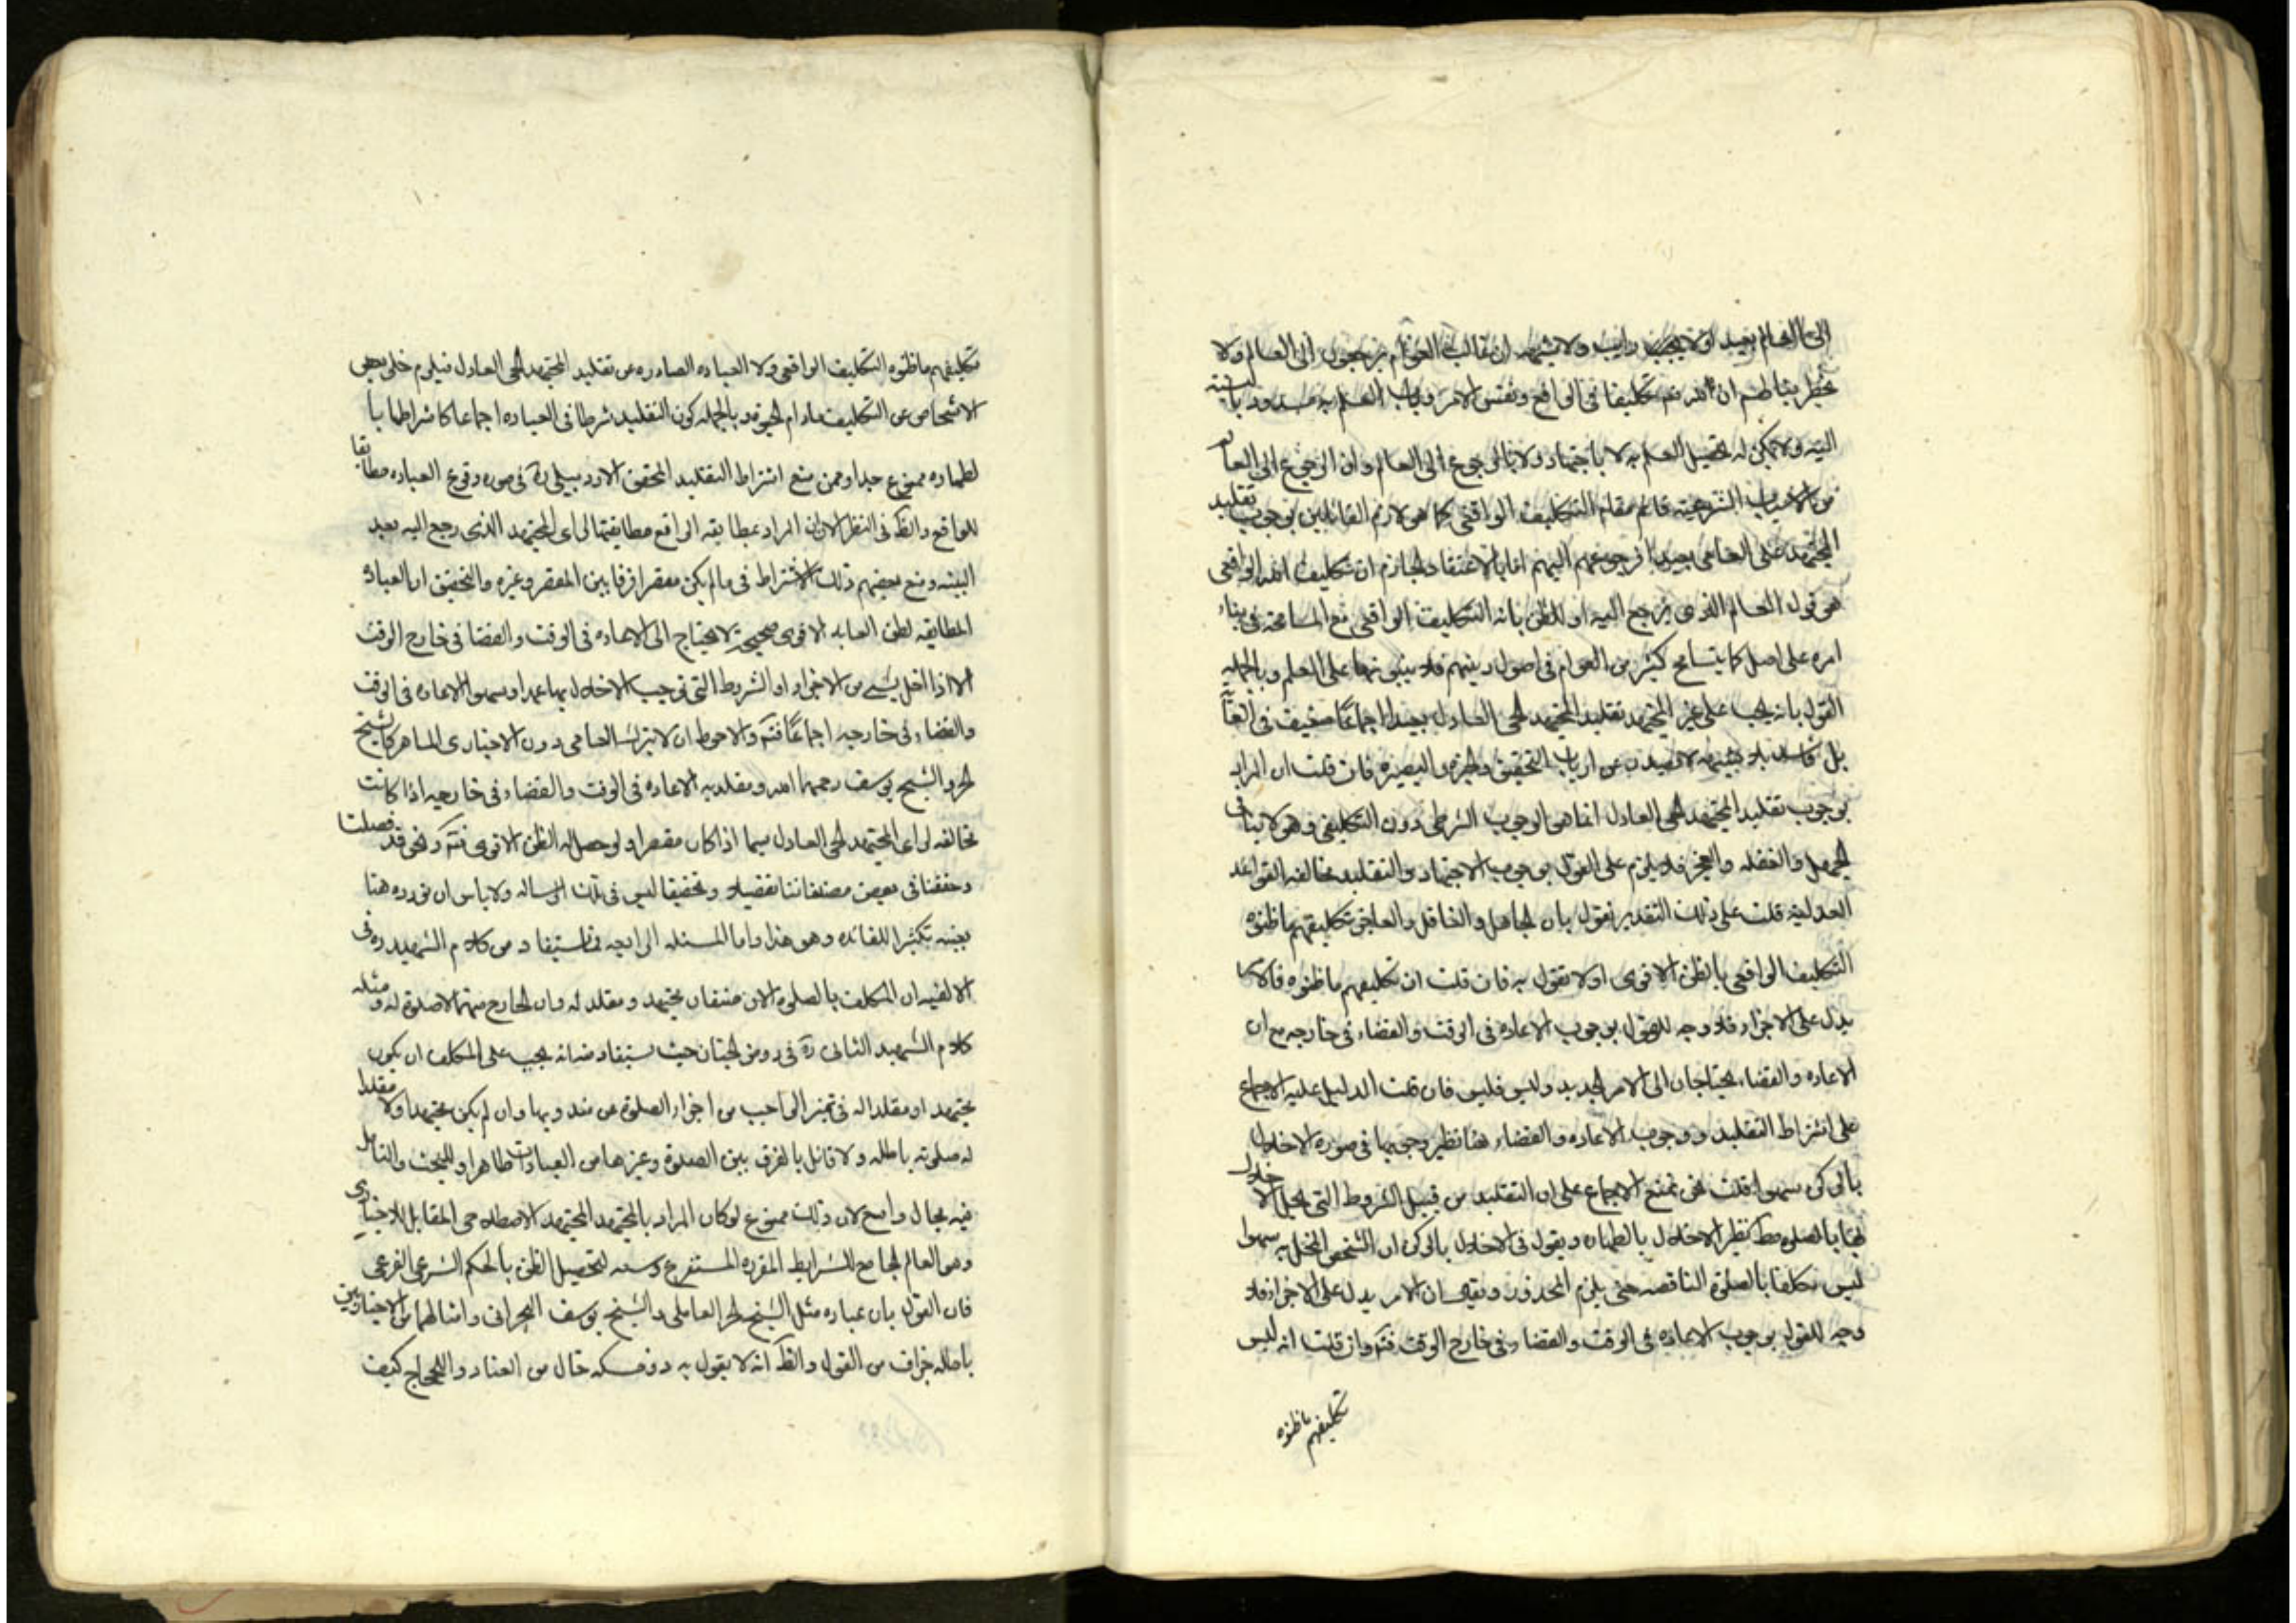 الى العالم بعيد اولا يجب رايت ولا يشتهه ان غالب العوام يرجعون الى العالم ولا
يخطر ببالهم ان لله تعم تكليفا فى الواقع ونفس الامر وباب العلم به مسدود بالنسبة
اليه ولا يمكن له تحصيل العلم به لا باجتهاد ولا بالرجوع الى العالم وان الرجوع الى العالم
من الاسباب الشرعية قائم مقام التكليف الواقعى كما هو لازم القائلين بوجوب تقليد
المجتهد على العامى بعيدا فرجوعهم اليهم اما بالاعتقاد الجازم ان تكليف الله الواقعى
هو قول العالم الذى يرجع اليه او للظن بانه التكليف الواقعى مع المسامحة فى بناء
امره على اصل كما يتسامح كثير من العوام فى اصول دينهم فلا يبنونها على العلم وبالجمله
القول بانه يجب على غير المجتهد تقليد المجتهد الحى العادل بعيدا اجماعا ضعيف فى الغاية
بل فاسد بلا شبهه لا يصدر عن ارباب التحقيق والخبرة والبصيرة فان قلت ان المراد
بوجوب تقليد المجتهد الحى العادل انما هو الوجوب الشرطى دون التكليفى وهو لا ينافى
الجهل والغفله والعجز فلا يلزم على القول بوجوب الاجتهاد والتقليد مخالفه القواعد
العدليه قلت على ذلك التقدير نقول بان الجاهل والغافل والعاجز تكليفهم ما ظنوه
التكليف الواقعى بالظن الاقوى اولا نقول به فان قلت ان تكليفهم ما ظنوه فالامر
يدل على الاجزاء فلا وجه للقول بوجوب الاعاده فى الوقت والقضاء فى خارجه مع ان
الاعاده والقضاء يحتاجان الى الامر الجديد وليس فليس فان قلت الدليل عليه الاجماع
على اشتراط التقليد ووجوب الاعاده والقضاء هنا نظير وجوبها فى صورة الاخلال
بالركن سهوا قلت نحن نمنع الاجماع على ان التقليد من قبيل الشروط التى يخل الاخلال
بها بالصلوة مط كنظير الاخلال بالطهاره ويقول فى الاخلال بالركن ان الشخص المخل به سهوا
ليس مكلفا بالصلوة الناقصه حتى يلزم المحذور ويقال ان الامر يدل على الاجزاء فلا
وجه للقول بوجوب الاعاده فى الوقت والقضاء فى خارج الوقت فتم وان قلت انه ليس
تكليفهم ما ظنوه
تكليفهم ما ظنوه التكليف الواقعى ولا العباده الصادره من تقليد المجتهد الحى العادل فيلزم خلو بعض
الاشخاص عن التكليف مادام الحيوة وبالجمله كون التقليد شرطا فى العباده اجماعا كاشتراطها با
لطهاره ممنوع جدا وممن منع اشتراط التقليد المحقق الاردبيلى ره فى صوره وقوع العباده مطابقا
للواقع والظ فى النظر الان ان المراد بمطابقه الواقع مطابقتها لراى المجتهد الذى رجع اليه بعد
البينه ومنع بعضهم ذلك الاشتراط فى ما لم يكن مقصرا فرقا بين المقصر وغيره والتحقيق ان العباده
المطابقه لظن العابد الاقوى صحيحة لا يحتاج الى الاعاده فى الوقت والقضا فى خارج الوقت
الا اذا اخل بشيء من الاجزاء او الشروط التى توجب الاخلال بها عمدا وسهوا الاعاده فى الوقت
والقضاء فى خارجه اجماعا فتم والاحوط ان لا يترك العامى دون الاخبارى الماهر كالشيخ
الحر والشيخ يوسف رحمهما الله ومقلديه الاعاده فى الوقت والقضاء فى خارجه اذا كانت
مخالفه لراى المجتهد الحى العادل سيما اذا كان مقصرا ولو حصل له الظن الاقوى فتم ونحن قد فصلنا
وحققنا فى بعض مصنفاتنا تفصيلا وتحقيقا ليس فى تلك الرساله ولا باس ان نورده هنا
بعينه تكثيرا للفائده وهو هذا واما المسئله الرابعه فما يستفاد من كلام الشهيد ره فى
الالفيه ان المكلف بالصلوة الان صنفان مجتهد ومقلد له وان الخارج منهما لا صلوة له ومثله
كلام الشهيد الثانى ره فى روض الجنان حيث يستفاد منه انه يجب على المكلف ان يكون
مجتهدا او مقلدا له فى تميز الواجب من اجزاء الصلوة عن مندوبها وان لم يكن مجتهدا ولا مقلدا
له صلوته باطله ولا قائل بالفرق بين الصلوة وغيرها من العبادات ظاهرا وللبحث والتامل
فيه مجال واسع لان ذلك ممنوع لو كان المراد بالمجتهد المجتهد الاصطلاحى المقابل للاخبارى
وهو العالم الجامع للشرايط المقرره المستفرغ وسعه لتحصيل الظن بالحكم الشرعى الفرعى
فان القول بان عباره مثل الشيخ الحر العاملى والشيخ يوسف البحرانى وامثالهما من الاخباريين
باطله جزاف من القول والظ انه لا يقول به ذو مسكه خال من العناد واللجاج كيف